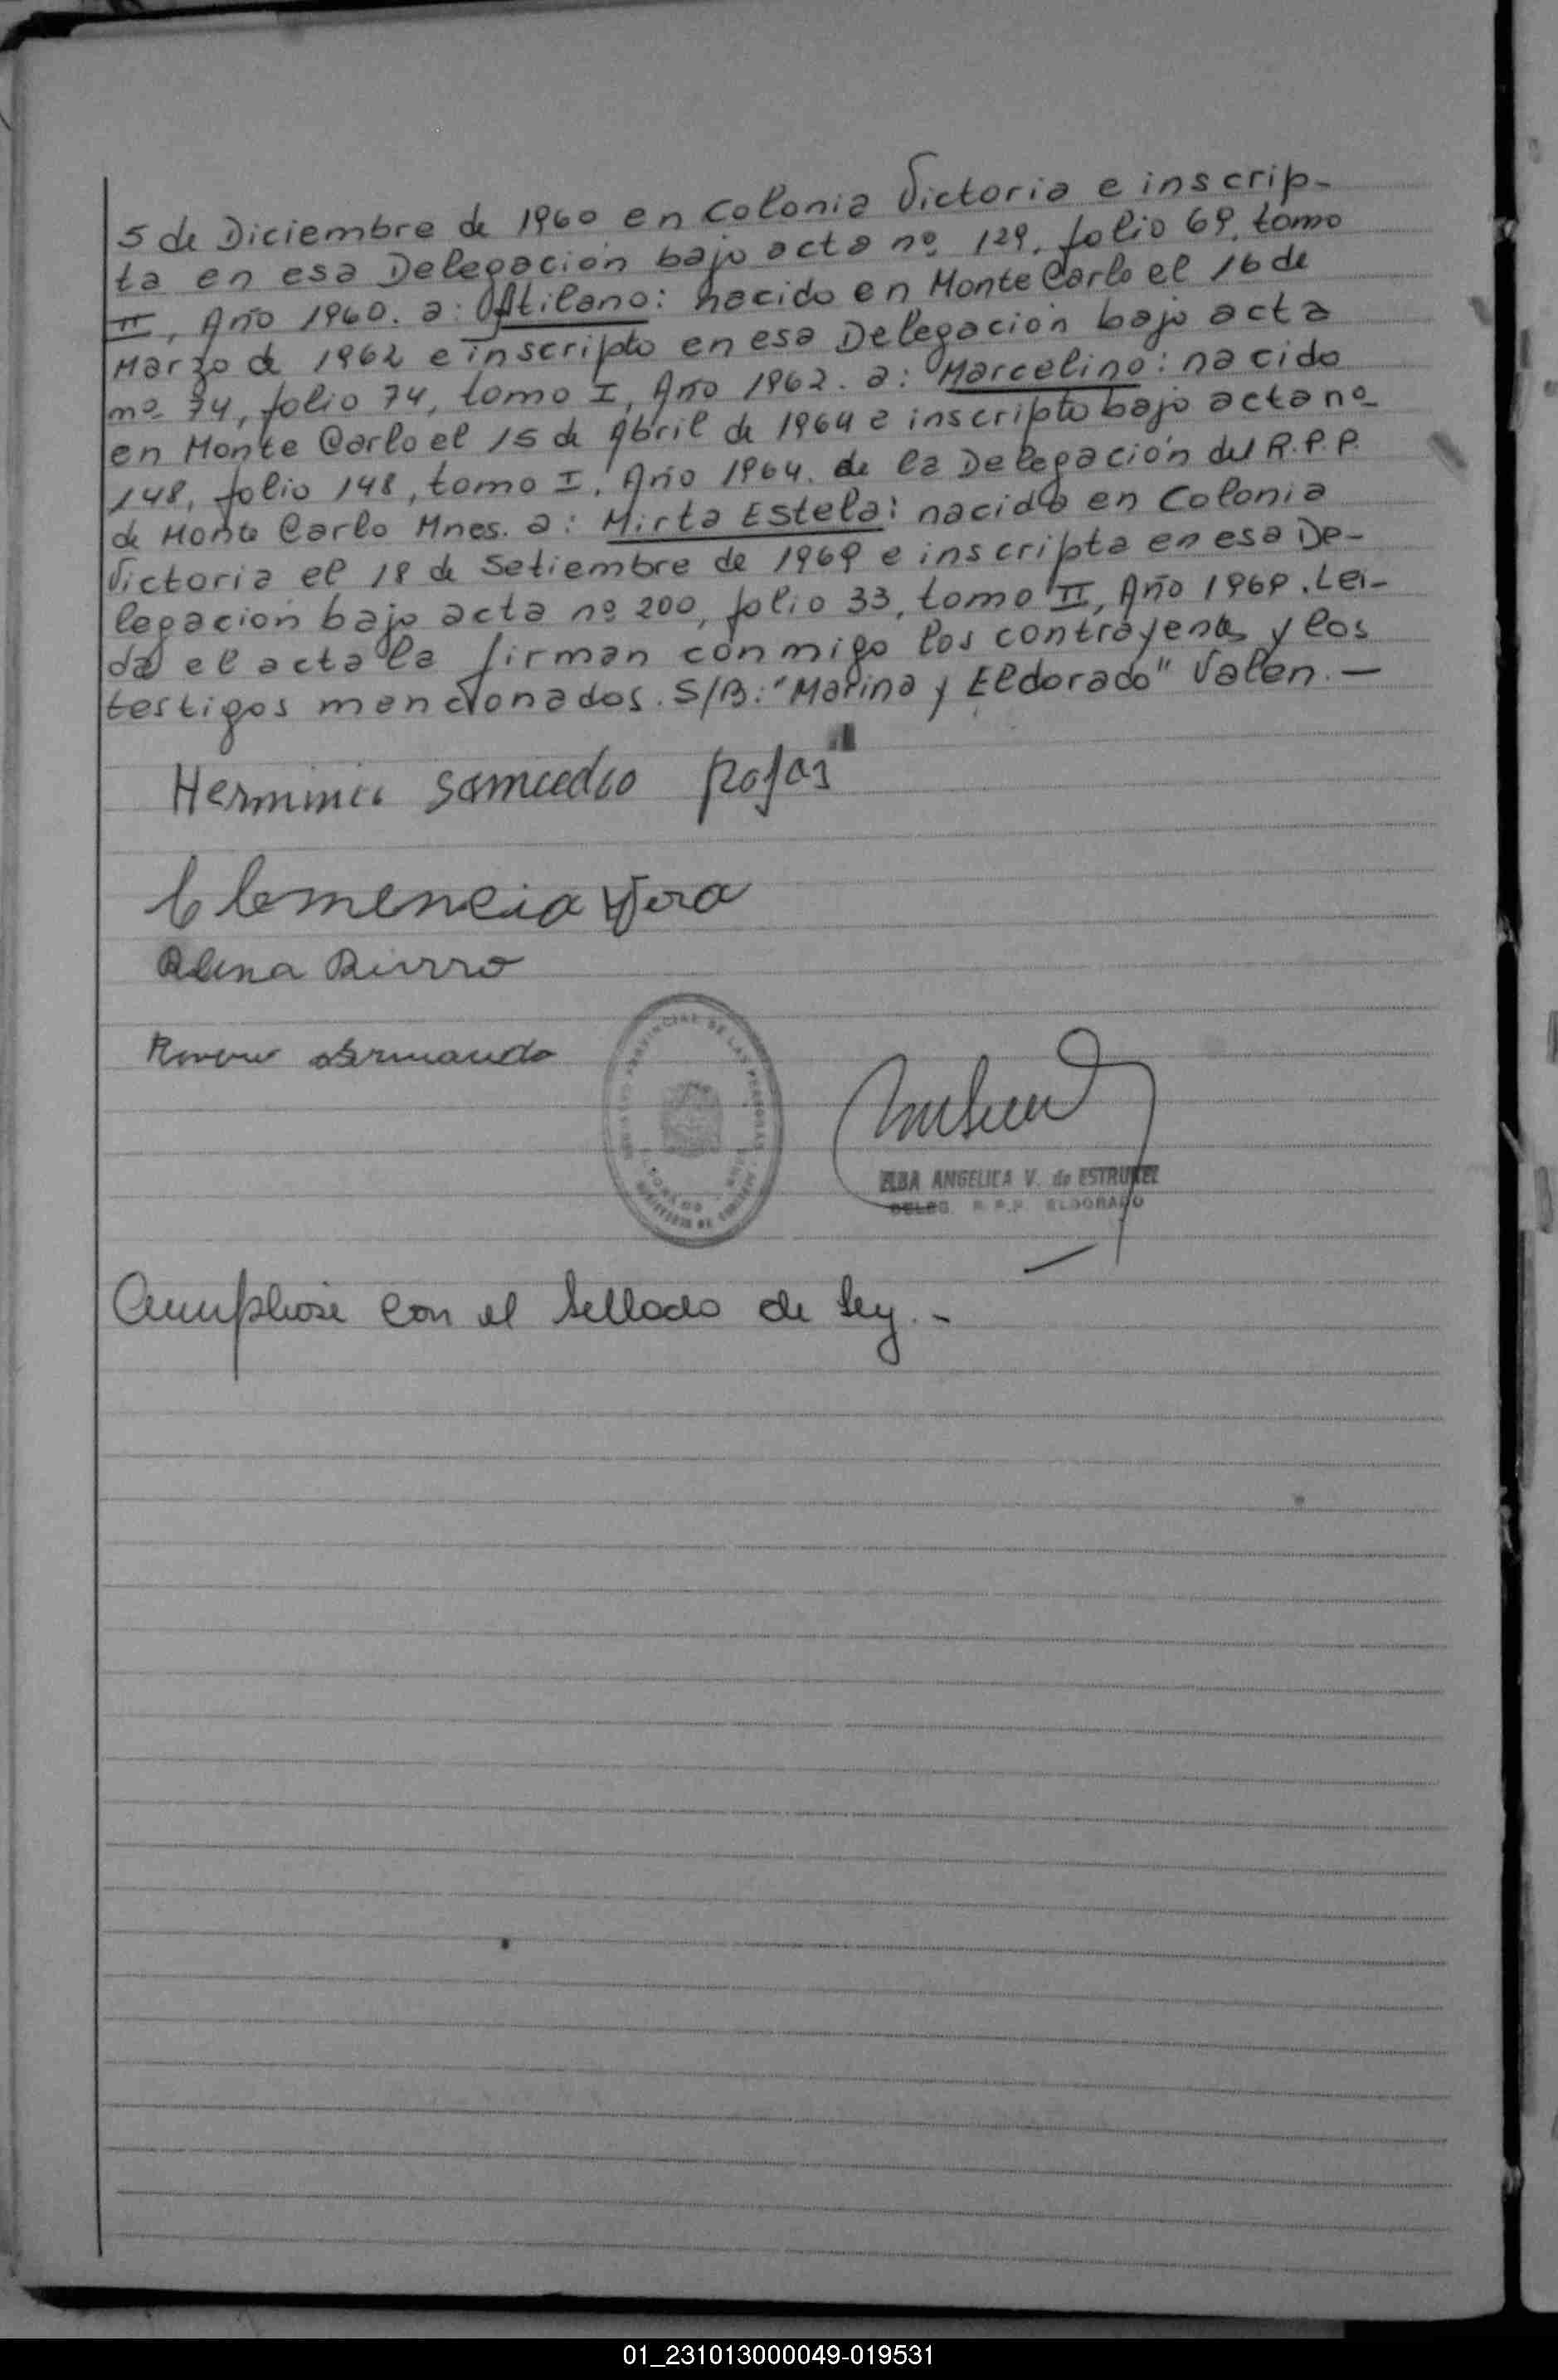 5 de Diciembre de 1960 en Colonia Victoria e inscrip-
ta en esa Delegación bajo acta nº 129, folio 69, tomo
II, Año 1960. a: Atilano: nacido en Monte Carlo el 16 de
Marzo de 1962 e inscripto en esa Delegación bajo acta
nº 74, folio 74, tomo I, Año 1962. a: Marcelino: nacido
en Monte Carlo el 15 de Abril de 1964 e inscripto bajo acta nº
148, folio 148, tomo I, Año 1964. de la Delegación del R.P.P.
de Monte Carlo Mnes. a: Mirta Estela: nacida en Colonia
Victoria el 18 de Setiembre de 1969 e inscripta en esa De-
legación bajo acta nº 200, folio 33, tomo II, Año 1969. Lei-
da el acta la firman conmigo los contrayentes y los
testigos mencionados. S/B: "Marina y Eldorado" Valen. —
Herminia Samudio Rojas
Clemencia Vera
Armando
PROVINCIAL DE LAS PERSONAS
ELBA ANGELICA V. de
DELEG. R.P.P. ELDORADO
Cumpliose con el Sellado de Ley.-
01_231013000049-019531